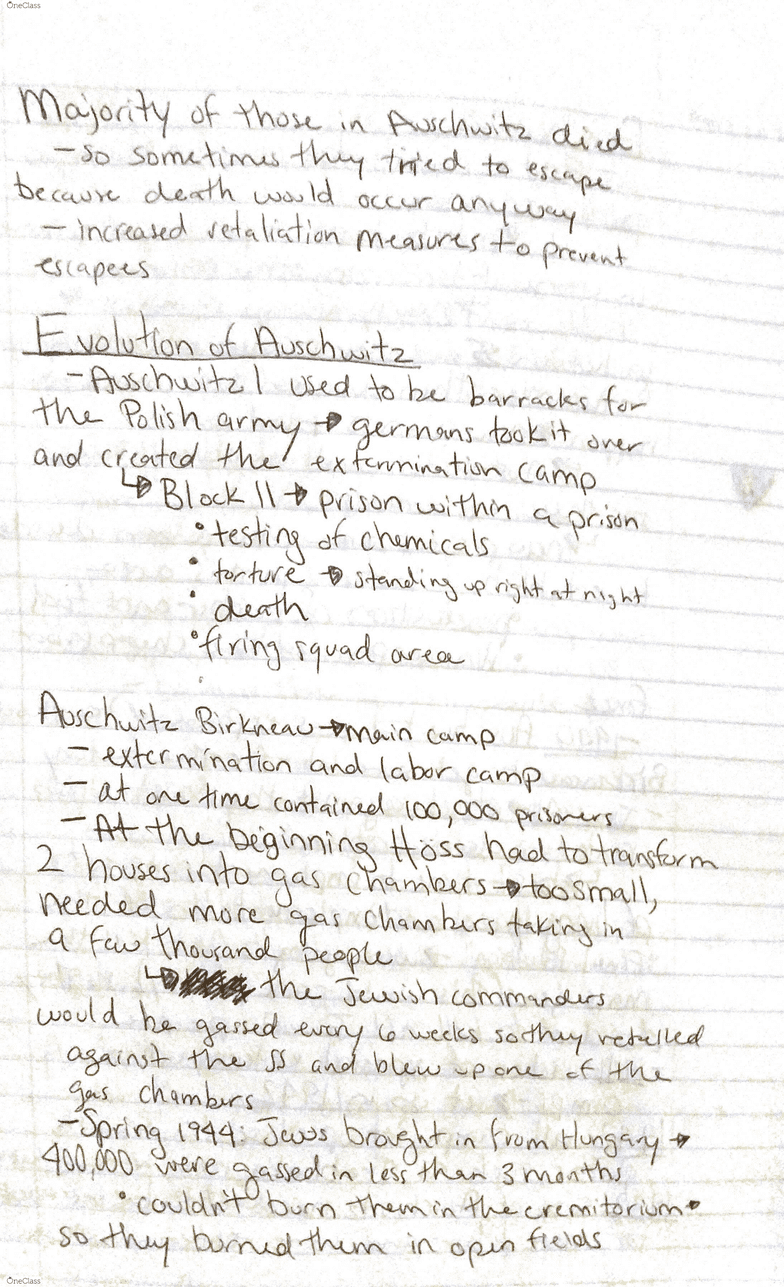 OneClass
Majority of those in Auschwitz died
- so sometimes they tried to escape
because death would occur anyway
- increased retaliation measures to prevent
escapees
Evolution of Auschwitz
- Auschwitz 1 used to be barracks for
the Polish army → germans took it over
and created the extermination camp
↳ Block 11 → prison within a prison
• testing of chemicals
• torture → standing up right at night
• death
• firing squad area
Auschwitz Birkneau → main camp
- extermination and labor camp
- at one time contained 100,000 prisoners
- At the beginning Höss had to transform
2 houses into gas chambers → too small,
needed more gas chambers taking in
a few thousand people
↳ the Jewish commanders
would be gassed every 6 weeks so they rebelled
against the SS and blew up one of the
gas chambers
- Spring 1944: Jews brought in from Hungary →
400,000 were gassed in less than 3 months
• couldn't burn them in the cremitorium
so they burned them in open fields
OneClass